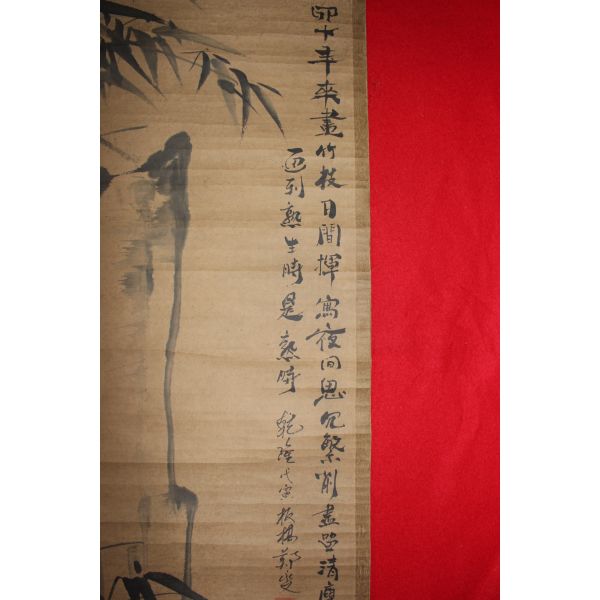 四十年來畫竹枝日間揮寫夜間思冗繁削盡留清瘦
画到熟生時是熟時 乾隆戊寅板橋鄭燮